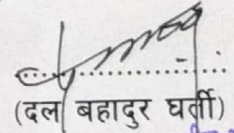 (दल बहादुर घर्ती)